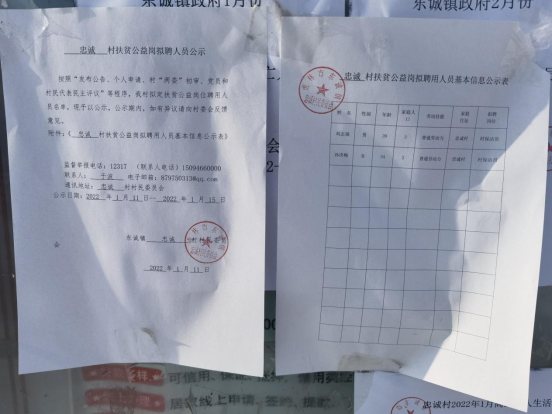 东诚镇政府1月份
东诚镇政府2月份
忠诚 村扶贫公益岗拟聘人员公示
按照“发布公告、个人申请、村“两委”初审、党员和
村民代表民主评议”等程序，我村拟定扶贫公益岗位聘用人
员名单，现予以公示。公示期内，如有异议请向村委会反馈
意见。
附件：《 忠诚 村扶贫公益岗拟聘用人员基本信息公示表》
监督举报电话：12317 （联系人电话）15094660000
联系人： 于波 电子邮箱：879750313@qq.com
通讯地址： 忠诚 村村民委员会
公示日期：2022 年 1 月 11 日—— 2022 年 1 月 15 日
东诚镇 忠诚 村村民委员
会
2022 年 1 月 11 日
忠诚 村扶贫公益岗拟聘用人员基本信息公示表
姓名 性别 年龄 家庭人口 劳动技能 家庭住址 拟聘岗位
普通劳动力 忠诚村 村保洁员
普通劳动力 忠诚村 村保洁员
可信用、保证、抵押、
居家线上申请、签约、提款
忠诚村2022年1月 人生活